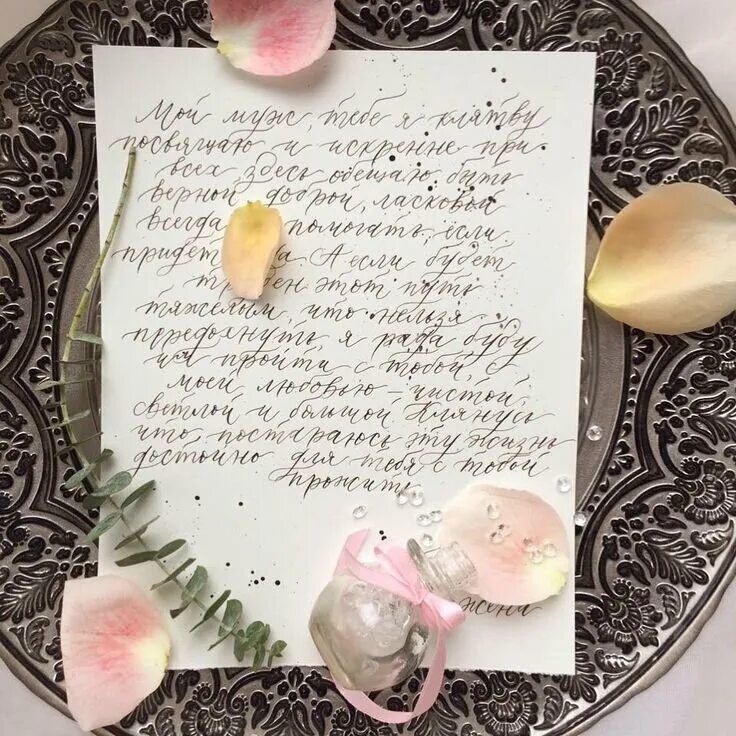 Мой муж, тебе я клятву
посвящаю и искренне при
всех здесь обещаю быть
верной доброй, ласковой
всегда помогать, если
придет А если будет
этот путь
тяжелым, что нельзя
передохнуть, я рада буду
им пройти с тобой,
моей любовью – чистой,
светлой и большой. Клянусь
что, постараюсь эту жизнь
достойно для тебя с тобой
прожить.
жена